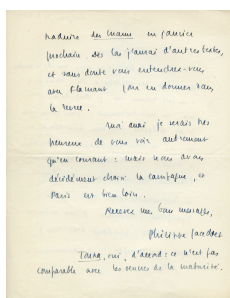 traduire des Mann en janvier
prochain. Dès lors j'aurai d'autres textes,
et sans doute vous entendrez-vous
avec Flamant pour en donner dans
la revue.
Moi aussi je serais très
heureux de vous voir autrement
qu'en courant : mais nous avons
décidément choisi la campagne, et
Paris est bien loin.
Recevez mes bons messages,
Philippe Jaccottet
, oui, d'accord : ce n'est pas
comparable avec les œuvres de la maturité.